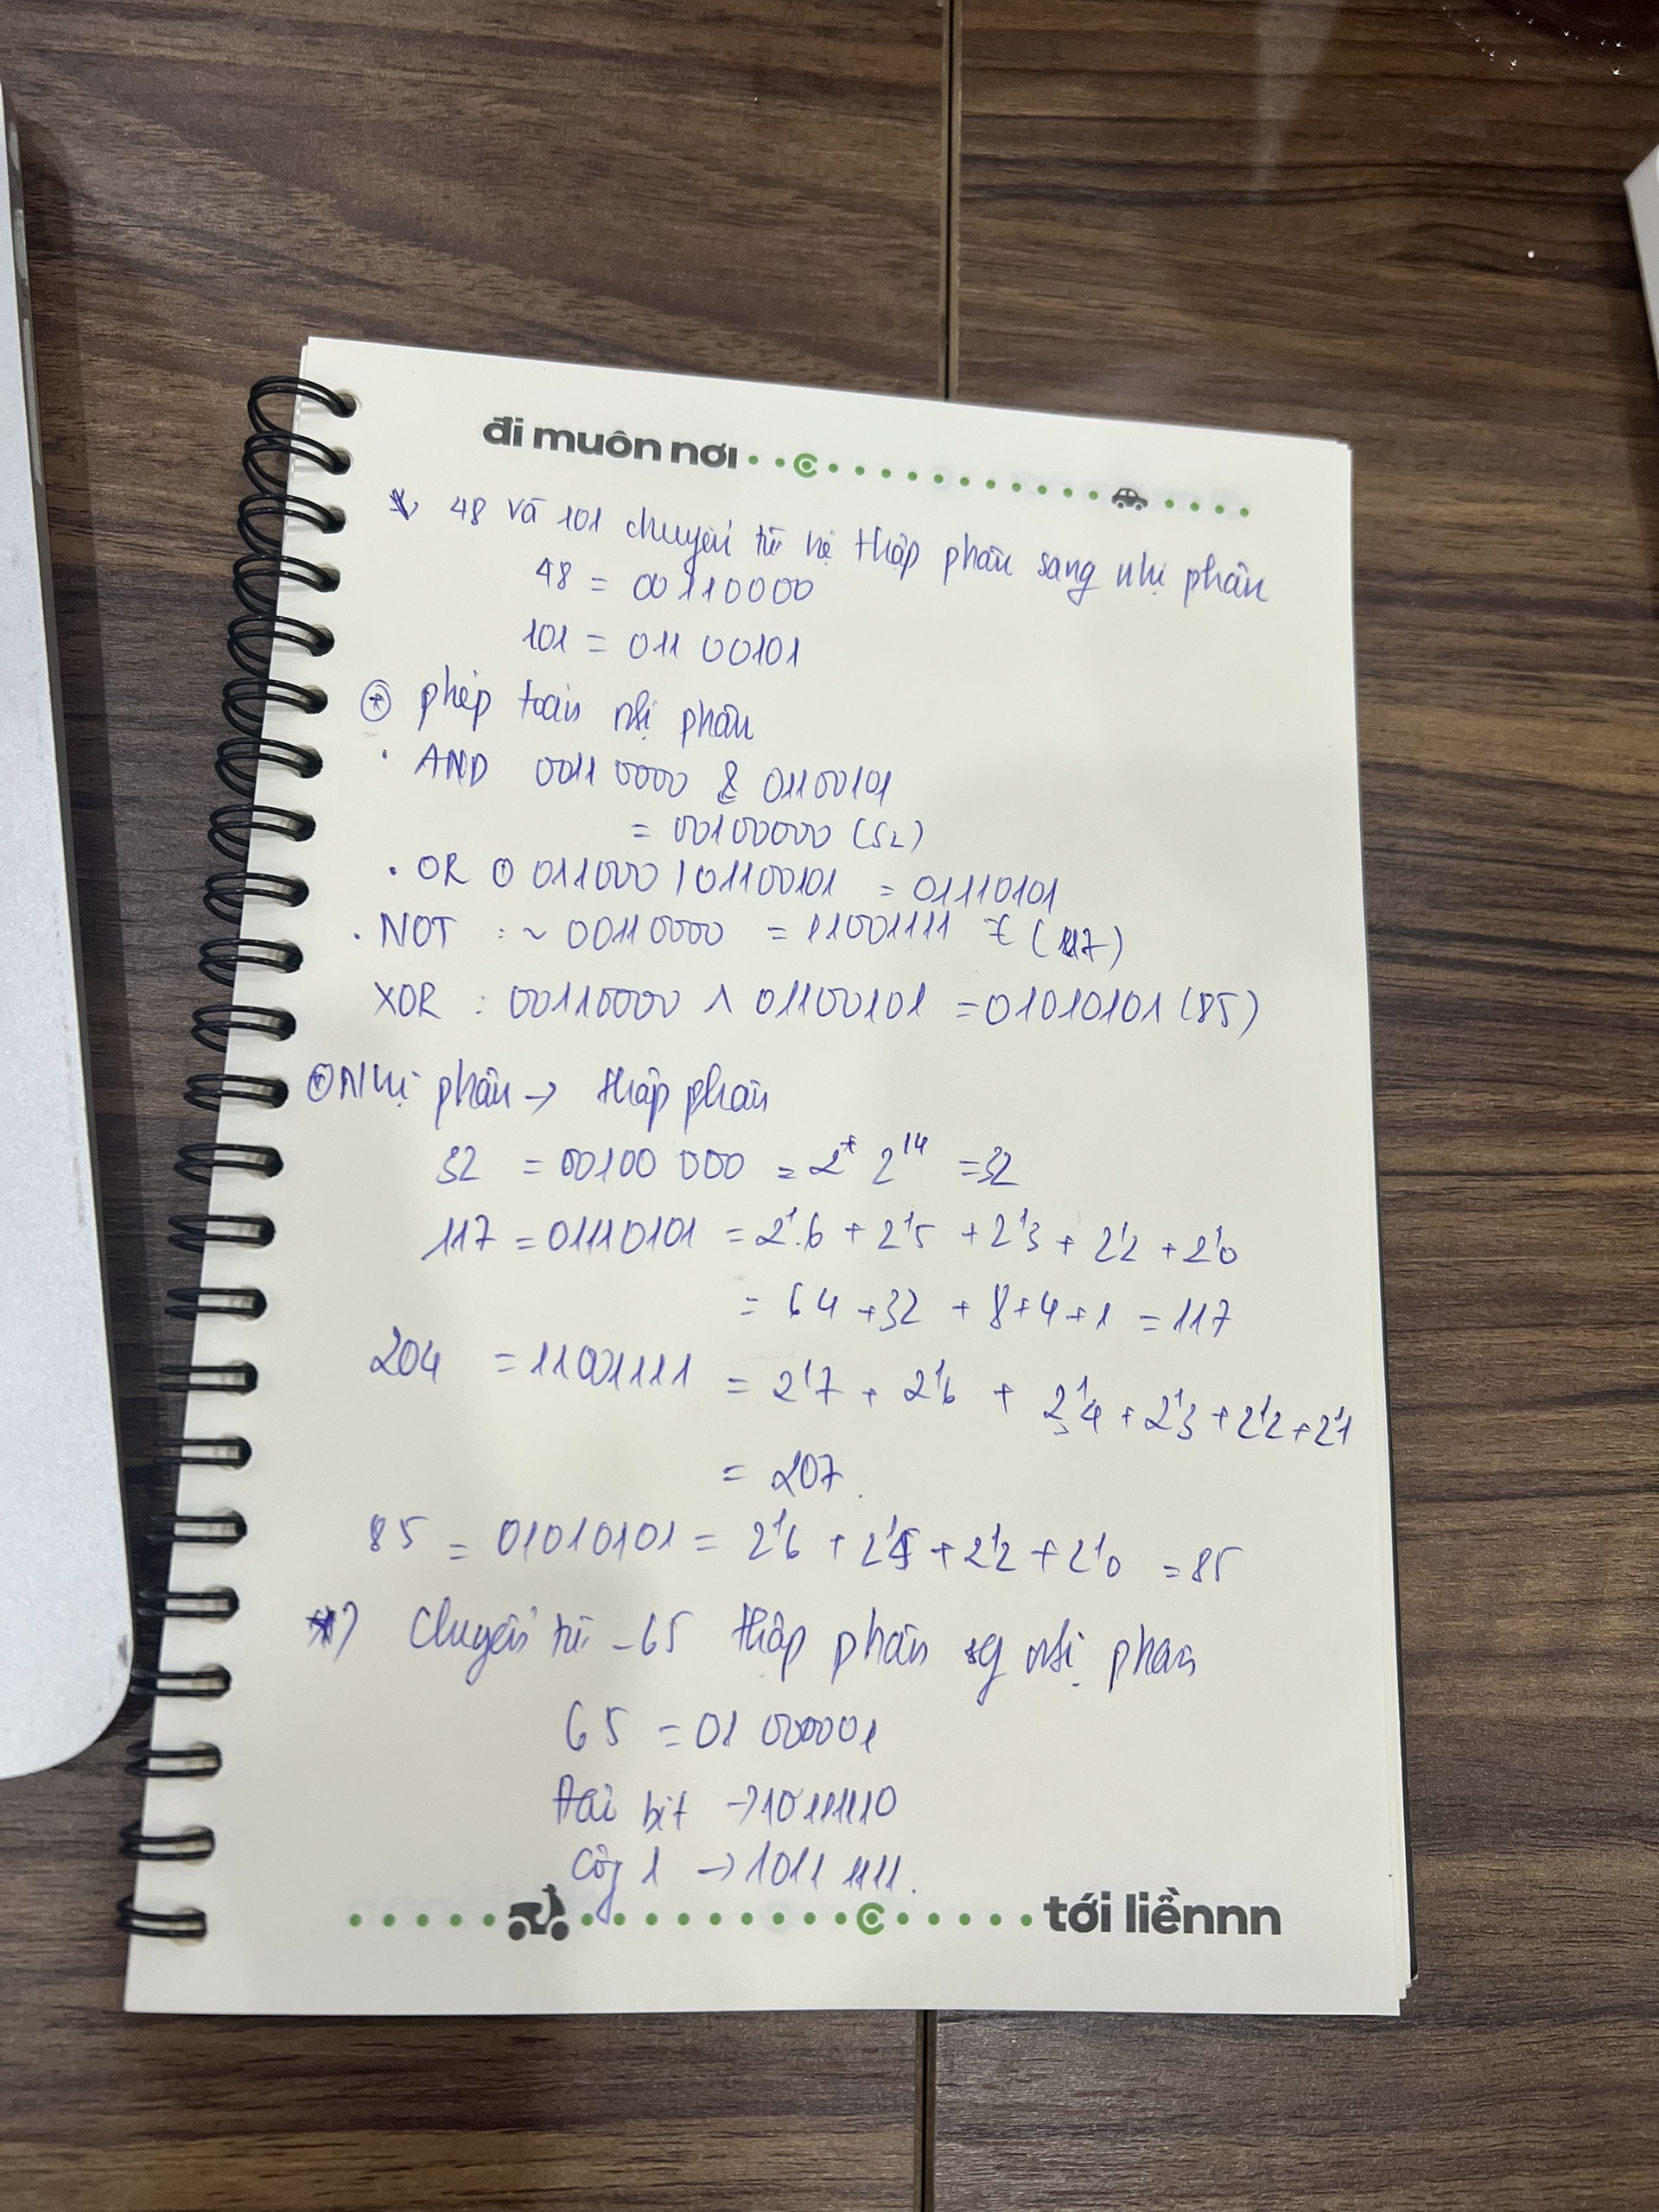 đi muôn nơi
48 và 101 chuyển từ hệ thập phân sang nhị phân
48 = 00110000
101 = 011 00101
* phép toán nhị phân
. AND 0011 0000 & 01100101
= 00100000 (52)
. OR 0 011000 | 01100101 = 01110101
. NOT : ~ 00110000 = 11001111 (117)
XOR : 00110000 ^ 01100101 = 01010101 (85)
Nhị phân -> thập phân
32 = 00100 000 = 2^+ 2^14 = 32
117 = 01110101 = 2^1.6 + 2^15 + 2^13 + 2^12 + 2^10
= 64 + 32 + 8 + 4 + 1 = 117
204 = 11001111 = 2^17 + 2^16 + 2^14 + 2^13 + 2^12 + 2^11
= 207.
85 = 01010101 = 2^16 + 2^15 + 2^12 + 2^10 = 85
*) Chuyển từ -65 thập phân sg nhị phân
65 = 01 000001
Đảo bit -> 10111110
Cộg 1 -> 1011 1111.
tới liềnnn